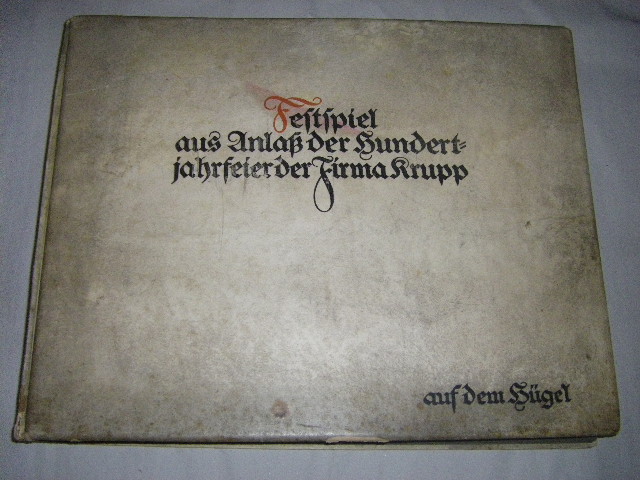 Festspiel
aus Anlaß der Hundert=
jahrfeier der Firma Krupp
auf dem Hügel